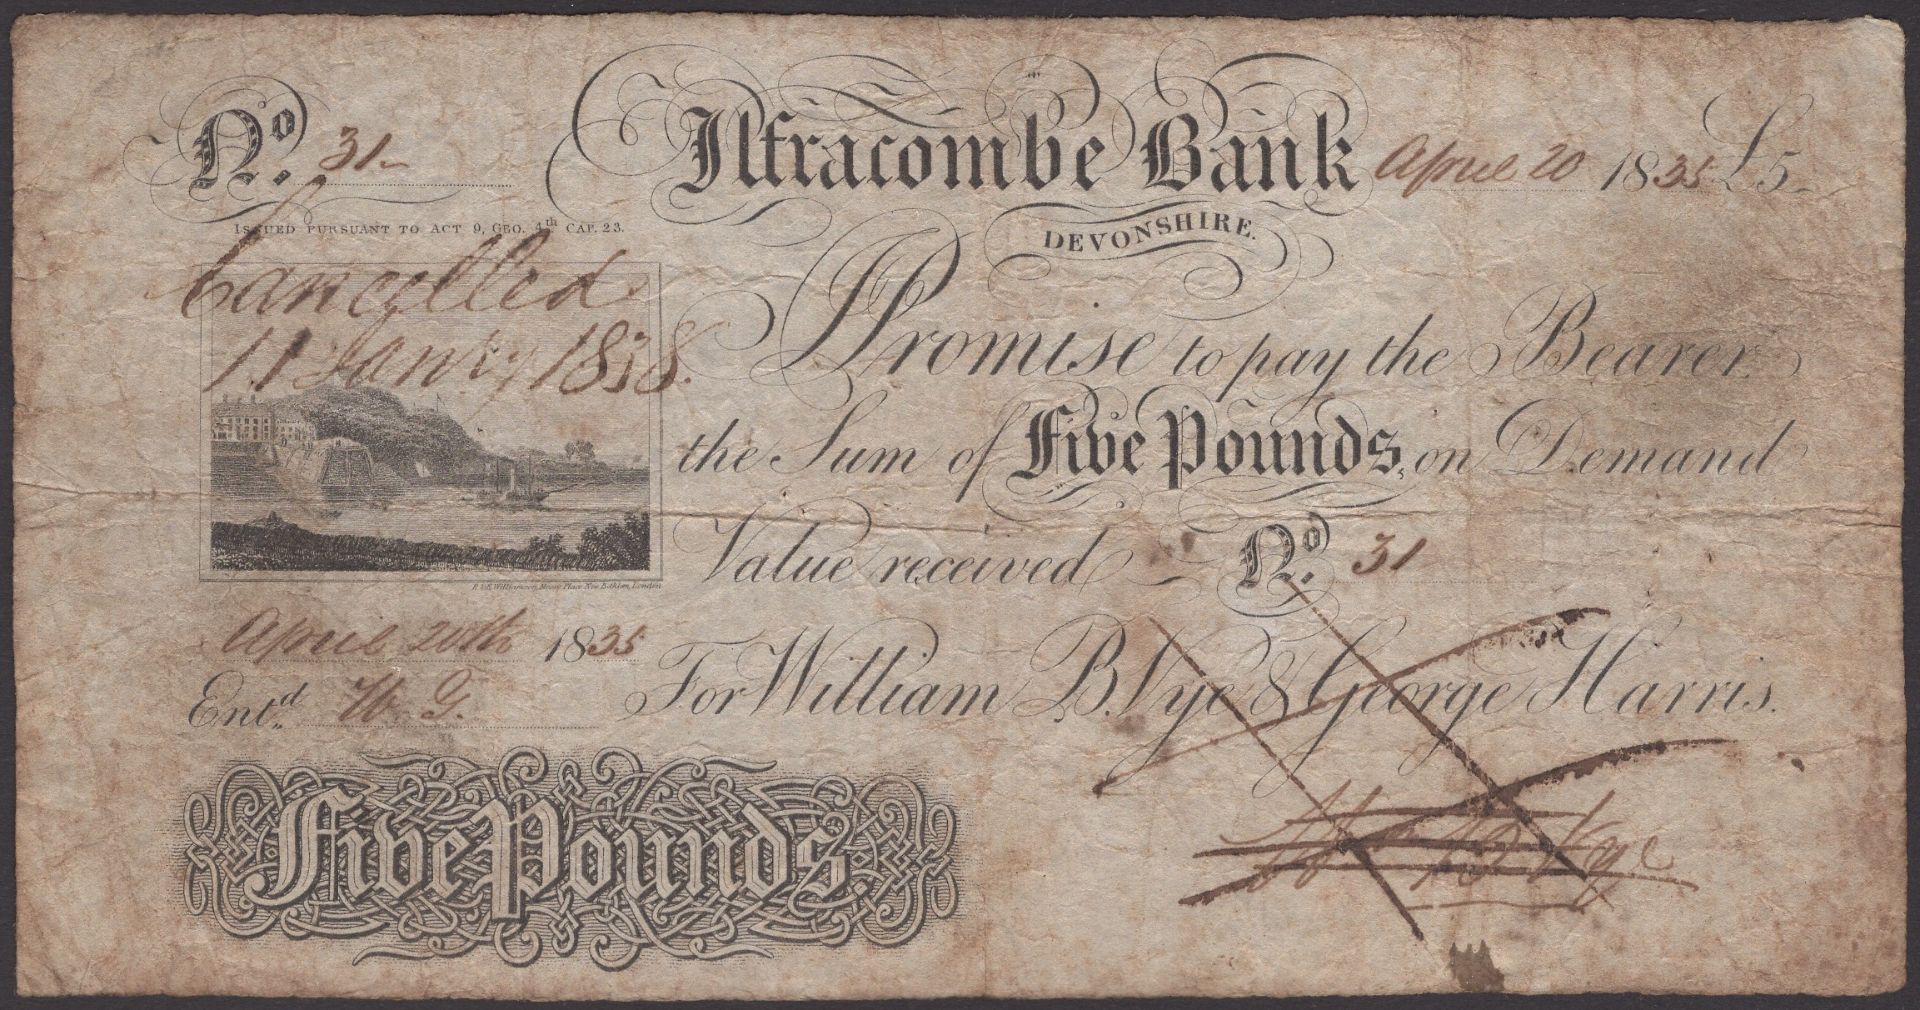 No. 31 Ilfracombe Bank April 20 1835 £5
DEVONSHIRE.
ISSUED PURSUANT TO ACT 9, GEO. 4th CAP. 23.
Cancelled
11 Janry 1838.
I Promise to pay the Bearer
the Sum of Five Pounds, on Demand
Value received No. 31
R & E Williamson, Place New Bethlem, London
April 20th 1835 For William B. Vye & George Harris.
Entd. W. G.
Five Pounds
Wm B Vye